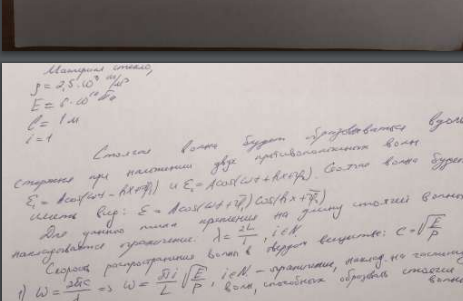 Материал стекло,
ρ = 2,5·10³ кг/м³
E = 6·10¹⁰ Па
l = 1 м
i = 1
Стоячие волны будут образовываться вдоль
стержня при наложении двух противоположных волн
ξ₁ = Acos(ωt - kx + φ₁) и ξ₂ = Acos(ωt + kx + φ₂). Стоячие волны будет
иметь вид: ξ = Acos(ωt + φ₁) cos(kx + φ₂)
Для данного типа крепления на длину стоячей волны
накладывается ограничение: λ = 2L/i, i∈N
Скорость распространения волны в твердом веществе: c = √(E/ρ)
1) ω = 2πc/λ => ω = πi/L √(E/ρ), i∈N - ограничение, наклад. на частоту
волн, способных образовать стоячие волны